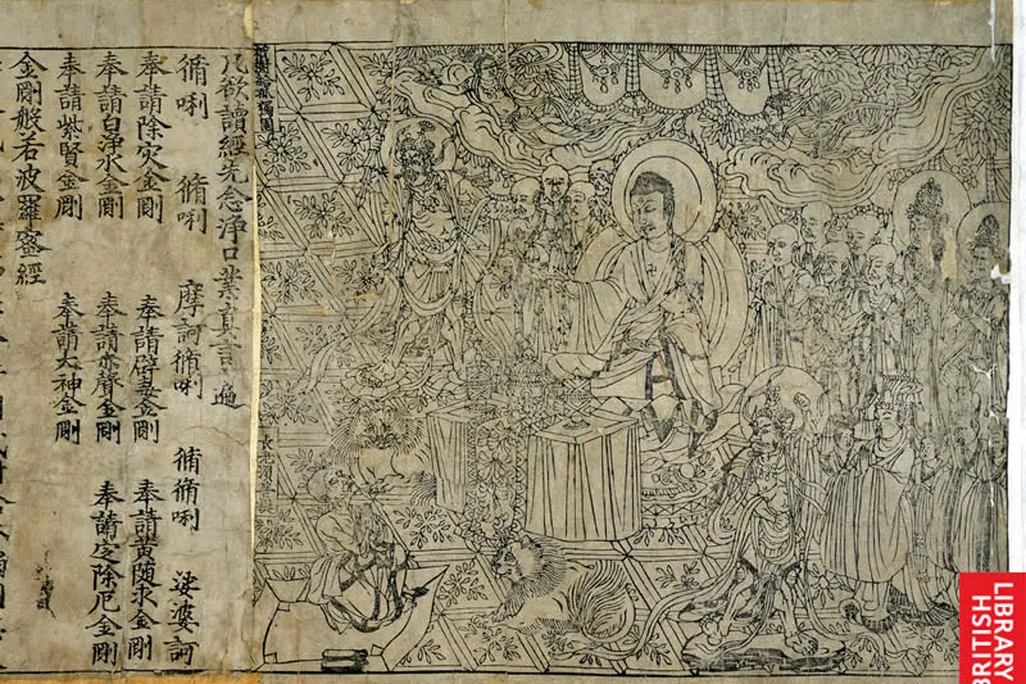 祇樹給孤獨園
長老須菩提
凡欲讀經先念淨口業真言一遍
脩唎 脩唎 摩訶脩唎 脩脩唎 娑婆訶
奉請除灾金剛 奉請辟毒金剛 奉請黄随求金剛
奉請白淨水金剛 奉請赤聲金剛 奉請定除厄金剛
奉請紫賢金剛 奉請大神金剛
金剛般若波羅蜜經
BRITISH
LIBRARY